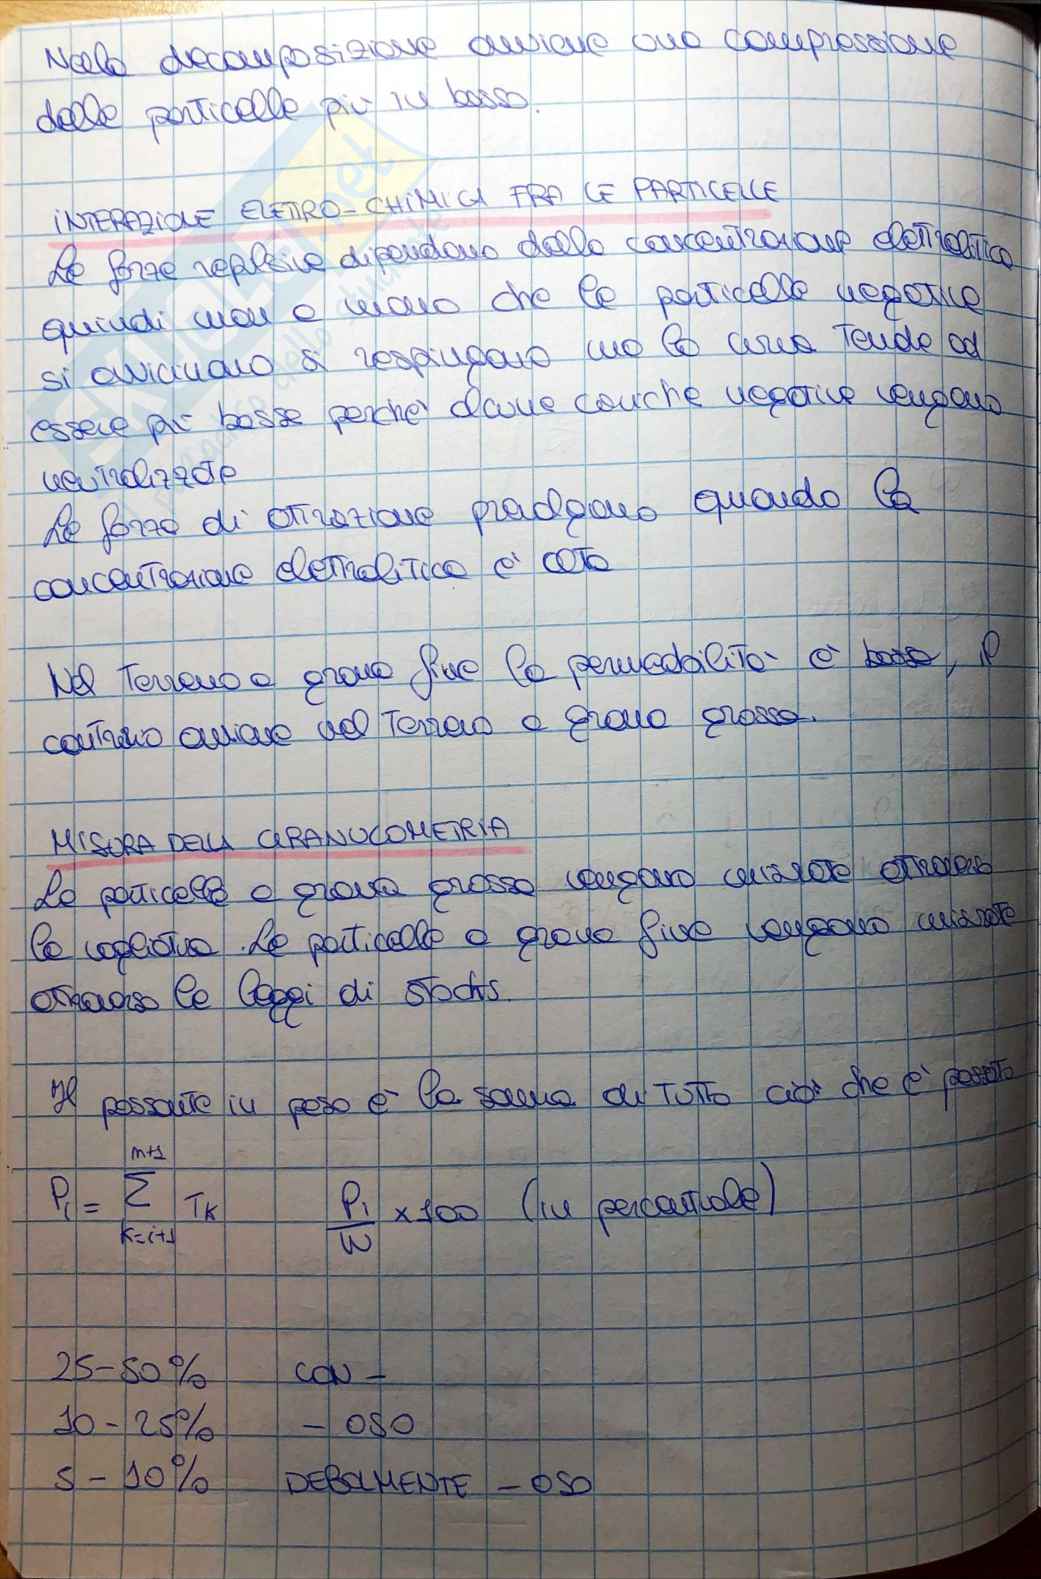 Nella decomposizione avviene una compressione
delle particelle più in basso.
INTERAZIONE ELETTRO-CHIMICA FRA LE PARTICELLE
Le forze repulsive dipendono dalla concentrazione elettrolitica
quindi man a mano che le particelle negative
si avvicinano si respingono ma la tende ad
essere più bassa perché cariche negative vengono
neutralizzate
Le forze di attrazione prevalgono quando la
concentrazione elettrolitica è alta
Nel Terreno a grana fine la permeabilità è bassa, il
contrario avviene nel Terreno a grana grossa.
MISURA DELLA GRANULOMETRIA
Le particelle a grana grossa vengono misurate attraverso
la vagliatura. Le particelle a grana fine vengono misurate
attraverso le leggi di Stocks.
Il passante in peso è la somma di TUTTO ciò che è passato
Pi = m+1 Σ k=i+1 TK Pi/W ×100 (in percentuale)
25-50% CON -
10-25% - OSO
5-10% DEBOLMENTE - OSO